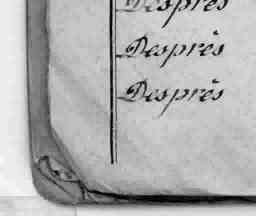 Després
Després
Després